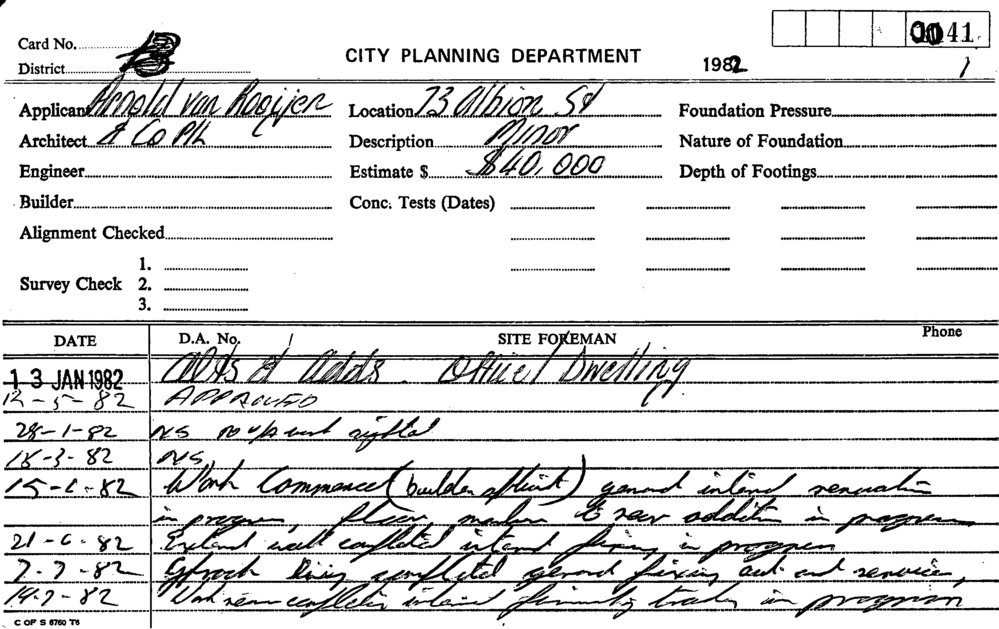 0041
Card No.
CITY PLANNING DEPARTMENT
1982
1
District
Applicant Arnold van Rooijen
Location 73 Albion St
Foundation Pressure
Architect & Co P/L
Description Minor
Nature of Foundation
Engineer
Estimate $ $40,000
Depth of Footings
Builder
Conc. Tests (Dates)
Alignment Checked
Survey Check
1.
2.
3.
DATE
D.A. No.
SITE FOREMAN
Phone
13 JAN 1982 Alts & Adds. Office/Dwelling
12-5-82 APPROVED
28-1-82 NS no work
18-3-82 NS
15-6-82 Work Commenced (builder) general internal renovation
in progress, to rear addition in progress
21-6-82 External wall completed internal fixing in progress
7-7-82 Gyprock lining completed general fixing out and services,
14-7-82 Work near completion internal finishing trades in progress
C OF S 6760 T6